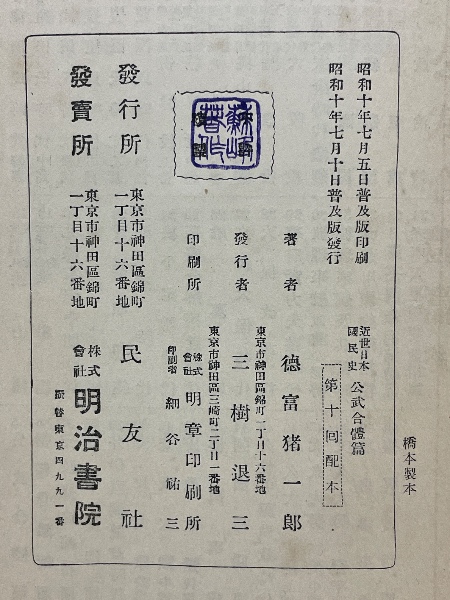 昭和十年七月五日普及版印刷
昭和十年七月十日普及版發行
近世日本國民史 公武合體篇
第十回配本
橋本製本
著者 德富猪一郎
東京市神田區錦町一丁目十六番地
發行者 三樹退三
東京市神田區三崎町二丁目一番地
印刷所 株式會社 明章印刷所
印刷者 細谷祐三
蘇峰
發行所 東京市神田區錦町一丁目十六番地 民友社
發賣所 東京市神田區錦町一丁目十六番地 株式會社 明治書院
振替東京四九九一番